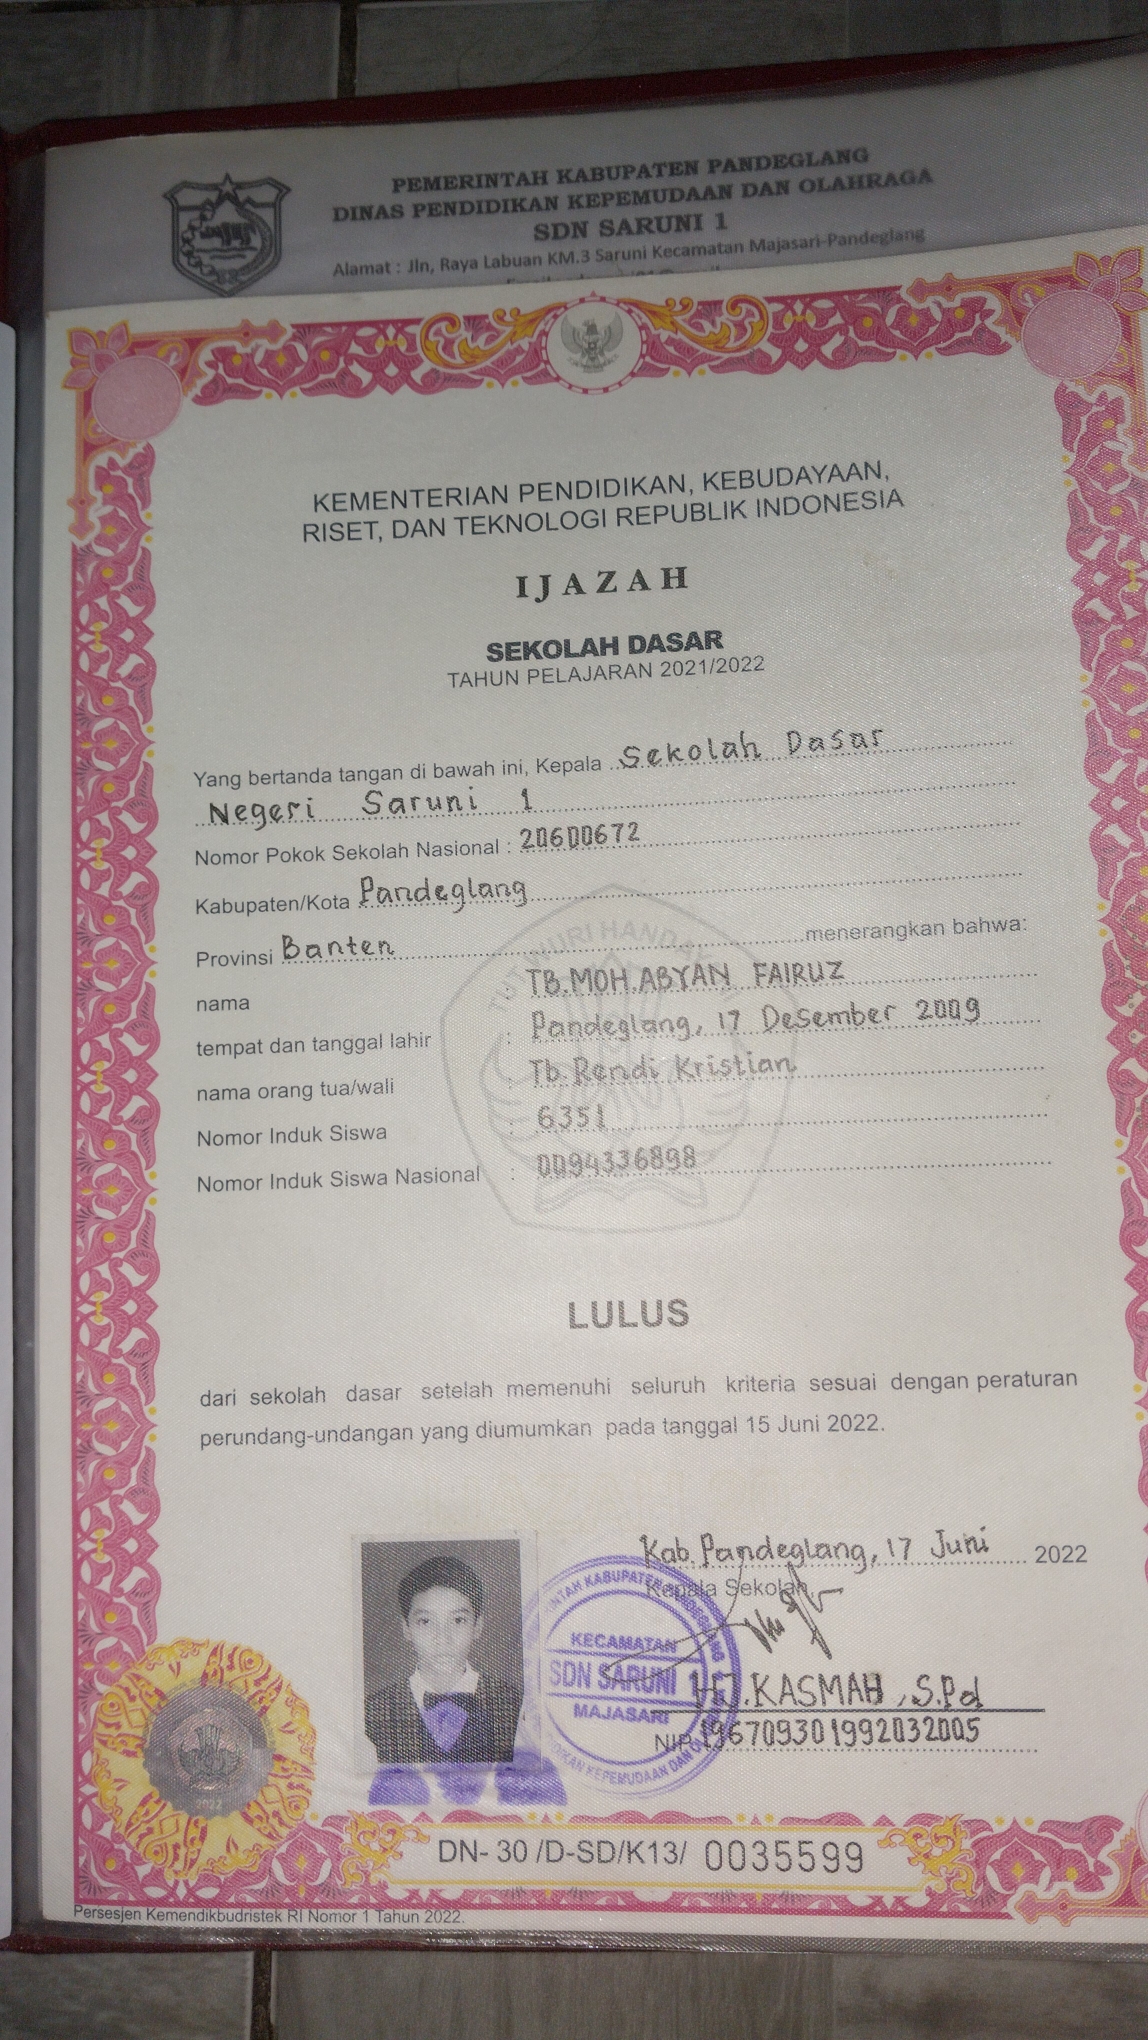 PEMERINTAH KABUPATEN PANDEGLANG
DINAS PENDIDIKAN KEPEMUDAAN DAN OLAHRAGA
SDN SARUNI 1
Alamat : Jln, Raya Labuan KM.3 Saruni Kecamatan Majasari-Pandeglang
KEMENTERIAN PENDIDIKAN, KEBUDAYAAN,
RISET, DAN TEKNOLOGI REPUBLIK INDONESIA
IJAZAH
SEKOLAH DASAR
TAHUN PELAJARAN 2021/2022
Yang bertanda tangan di bawah ini, Kepala Sekolah Dasar
Negeri Saruni 1
Nomor Pokok Sekolah Nasional : 20600672
Kabupaten/Kota Pandeglang
Provinsi Banten menerangkan bahwa:
nama TB.MOH.ABYAN FAIRUZ
tempat dan tanggal lahir : Pandeglang, 17 Desember 2009
nama orang tua/wali : Tb.Rendi Kristian
Nomor Induk Siswa : 6351
Nomor Induk Siswa Nasional : 0094336898
TUT WURI HANDAYANI
LULUS
dari sekolah dasar setelah memenuhi seluruh kriteria sesuai dengan peraturan
perundang-undangan yang diumumkan pada tanggal 15 Juni 2022.
Kab. Pandeglang, 17 Juni 2022
Kepala Sekolah,
KECAMATAN
SDN SARUNI 1
MAJASARI
HJ.KASMAH, S.Pd
NIP 196709301992032005
2022
DN- 30 /D-SD/K13/ 0035599
Persesjen Kemendikbudristek RI Nomor 1 Tahun 2022.